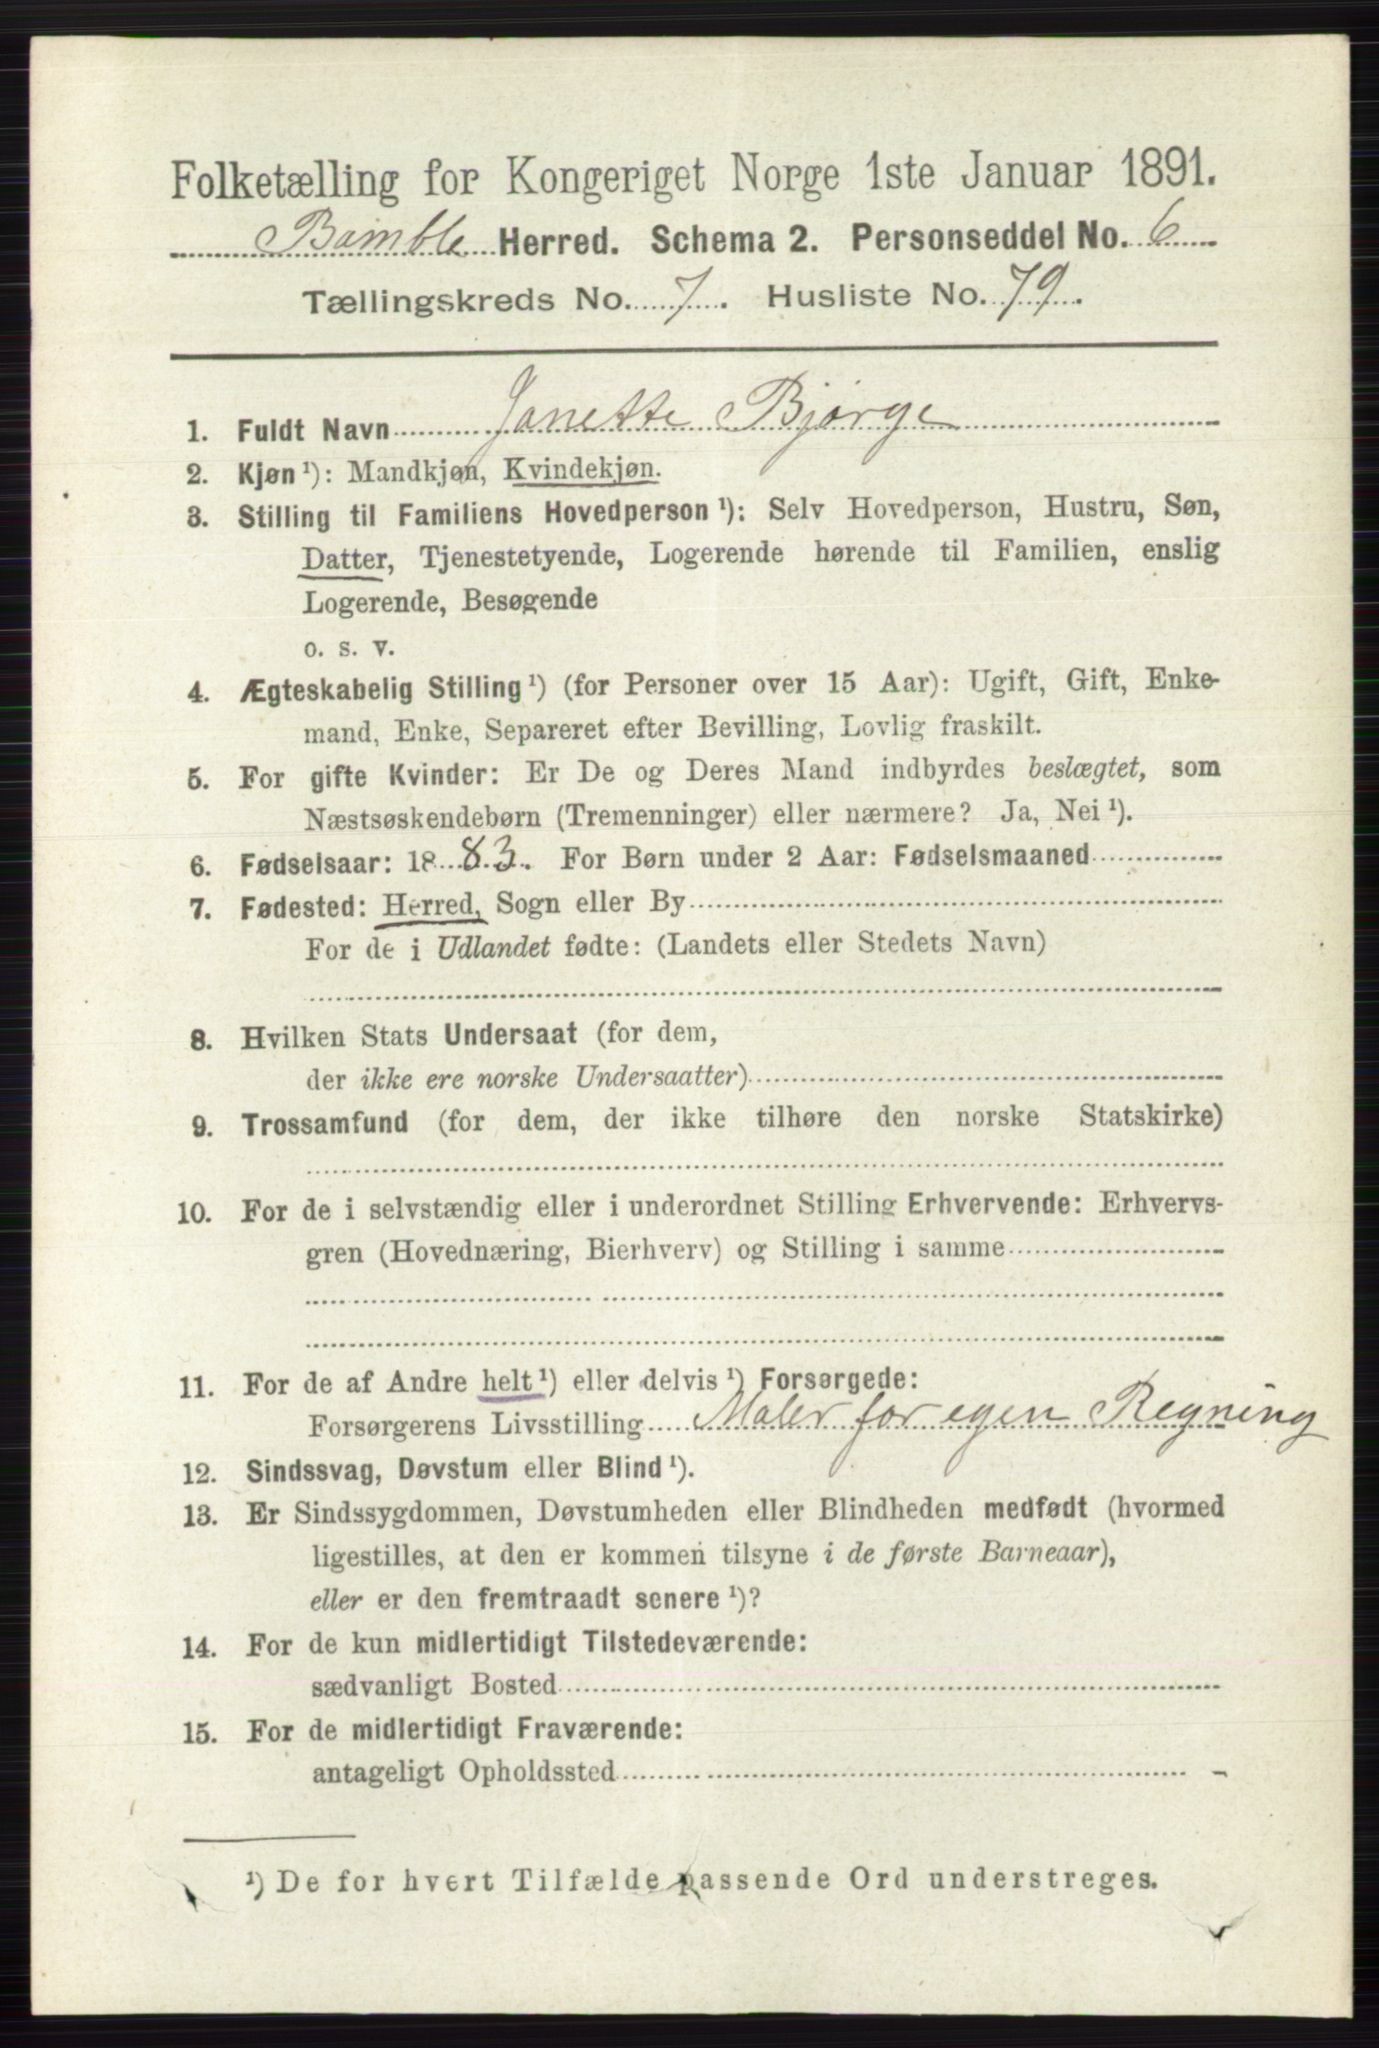 Folketælling for Kongeriget Norge 1ste Januar 1891.
Bamble Herred. Schema 2. Personseddel No. 6
Tællingskreds No. 7. Husliste No. 79.
1. Fuldt Navn Janette Bjørge
2. Kjøn ¹): Mandkjøn, Kvindekjøn.
3. Stilling til Familiens Hovedperson ¹): Selv Hovedperson, Hustru, Søn,
Datter, Tjenestetyende, Logerende hørende til Familien, enslig
Logerende, Besøgende
o. s. v.
4. Ægteskabelig Stilling ¹) (for Personer over 15 Aar): Ugift, Gift, Enke-
mand, Enke, Separeret efter Bevilling, Lovlig fraskilt.
5. For gifte Kvinder: Er De og Deres Mand indbyrdes beslægtet, som
Næstsøskendebørn (Tremenninger) eller nærmere? Ja, Nei ¹).
6. Fødselsaar: 1883. For Børn under 2 Aar: Fødselsmaaned
7. Fødested: Herred, Sogn eller By
For de i Udlandet fødte: (Landets eller Stedets Navn)
8. Hvilken Stats Undersaat (for dem,
der ikke ere norske Undersaatter)
9. Trossamfund (for dem, der ikke tilhøre den norske Statskirke)
10. For de i selvstændig eller i underordnet Stilling Erhvervende: Erhvervs-
gren (Hovednæring, Bierhverv) og Stilling i samme
11. For de af Andre helt ¹) eller delvis ¹) Forsørgede:
Forsørgerens Livsstilling Maler for egen Regning
12. Sindssvag, Døvstum eller Blind ¹).
13. Er Sindssygdommen, Døvstumheden eller Blindheden medfødt (hvormed
ligestilles, at den er kommen tilsyne i de første Barneaar),
eller er den fremtraadt senere ¹)?
14. For de kun midlertidigt Tilstedeværende:
sædvanligt Bosted
15. For de midlertidigt Fraværende:
antageligt Opholdssted
¹) De for hvert Tilfælde passende Ord understreges.